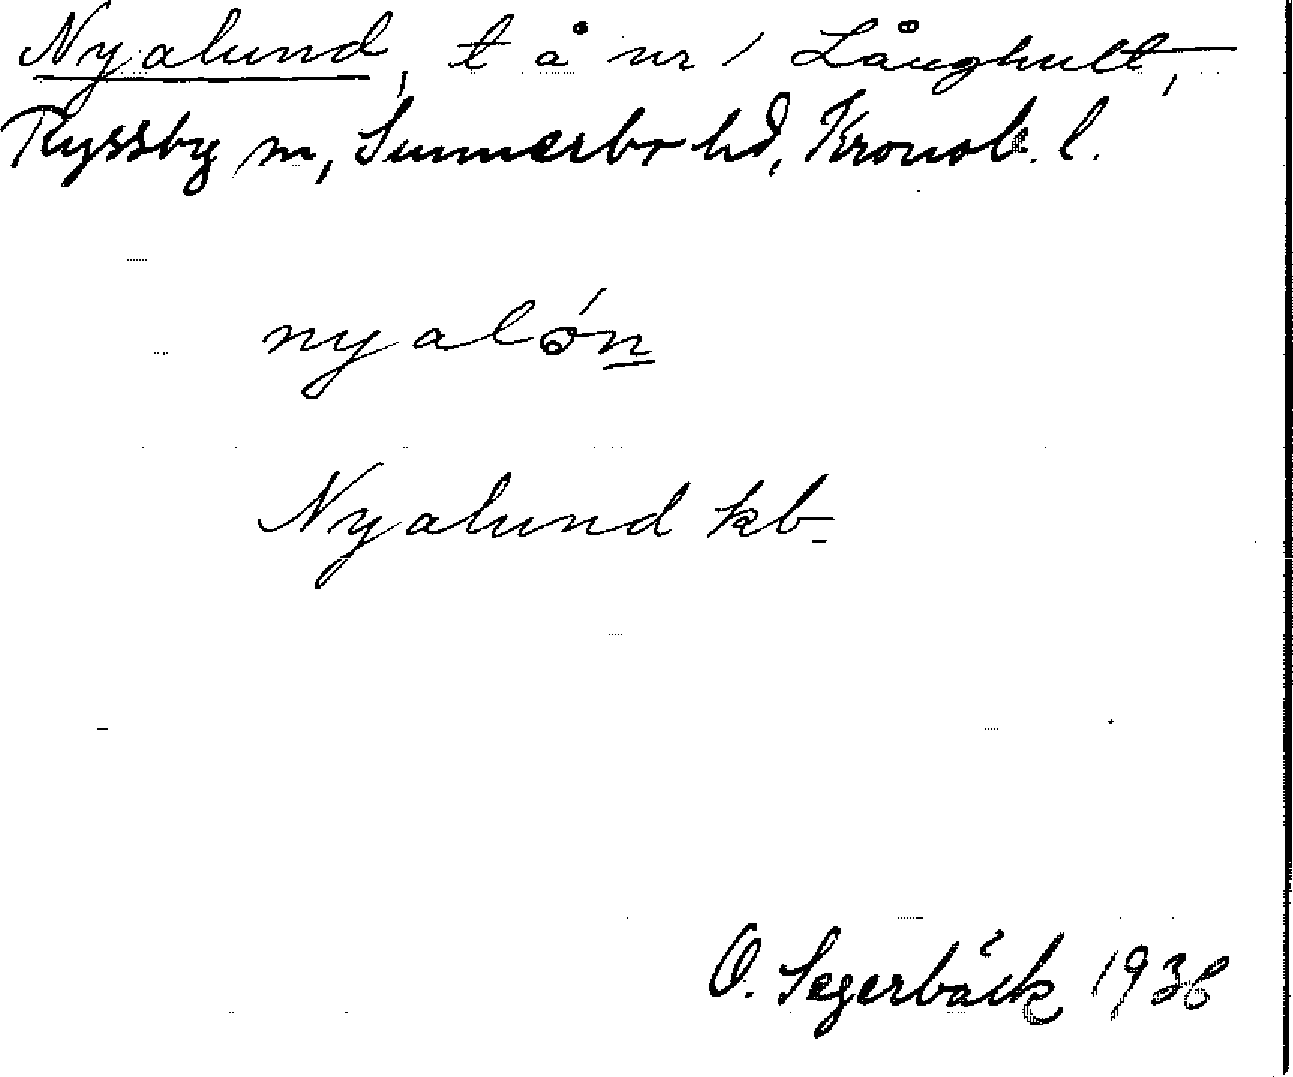 Nyalund, t å nr 1 Långhult,
Ryssby sn, Sunnerbo hd, Kronob. l.
nyalón
Nyalund kb.
O. Segerbäck 1938